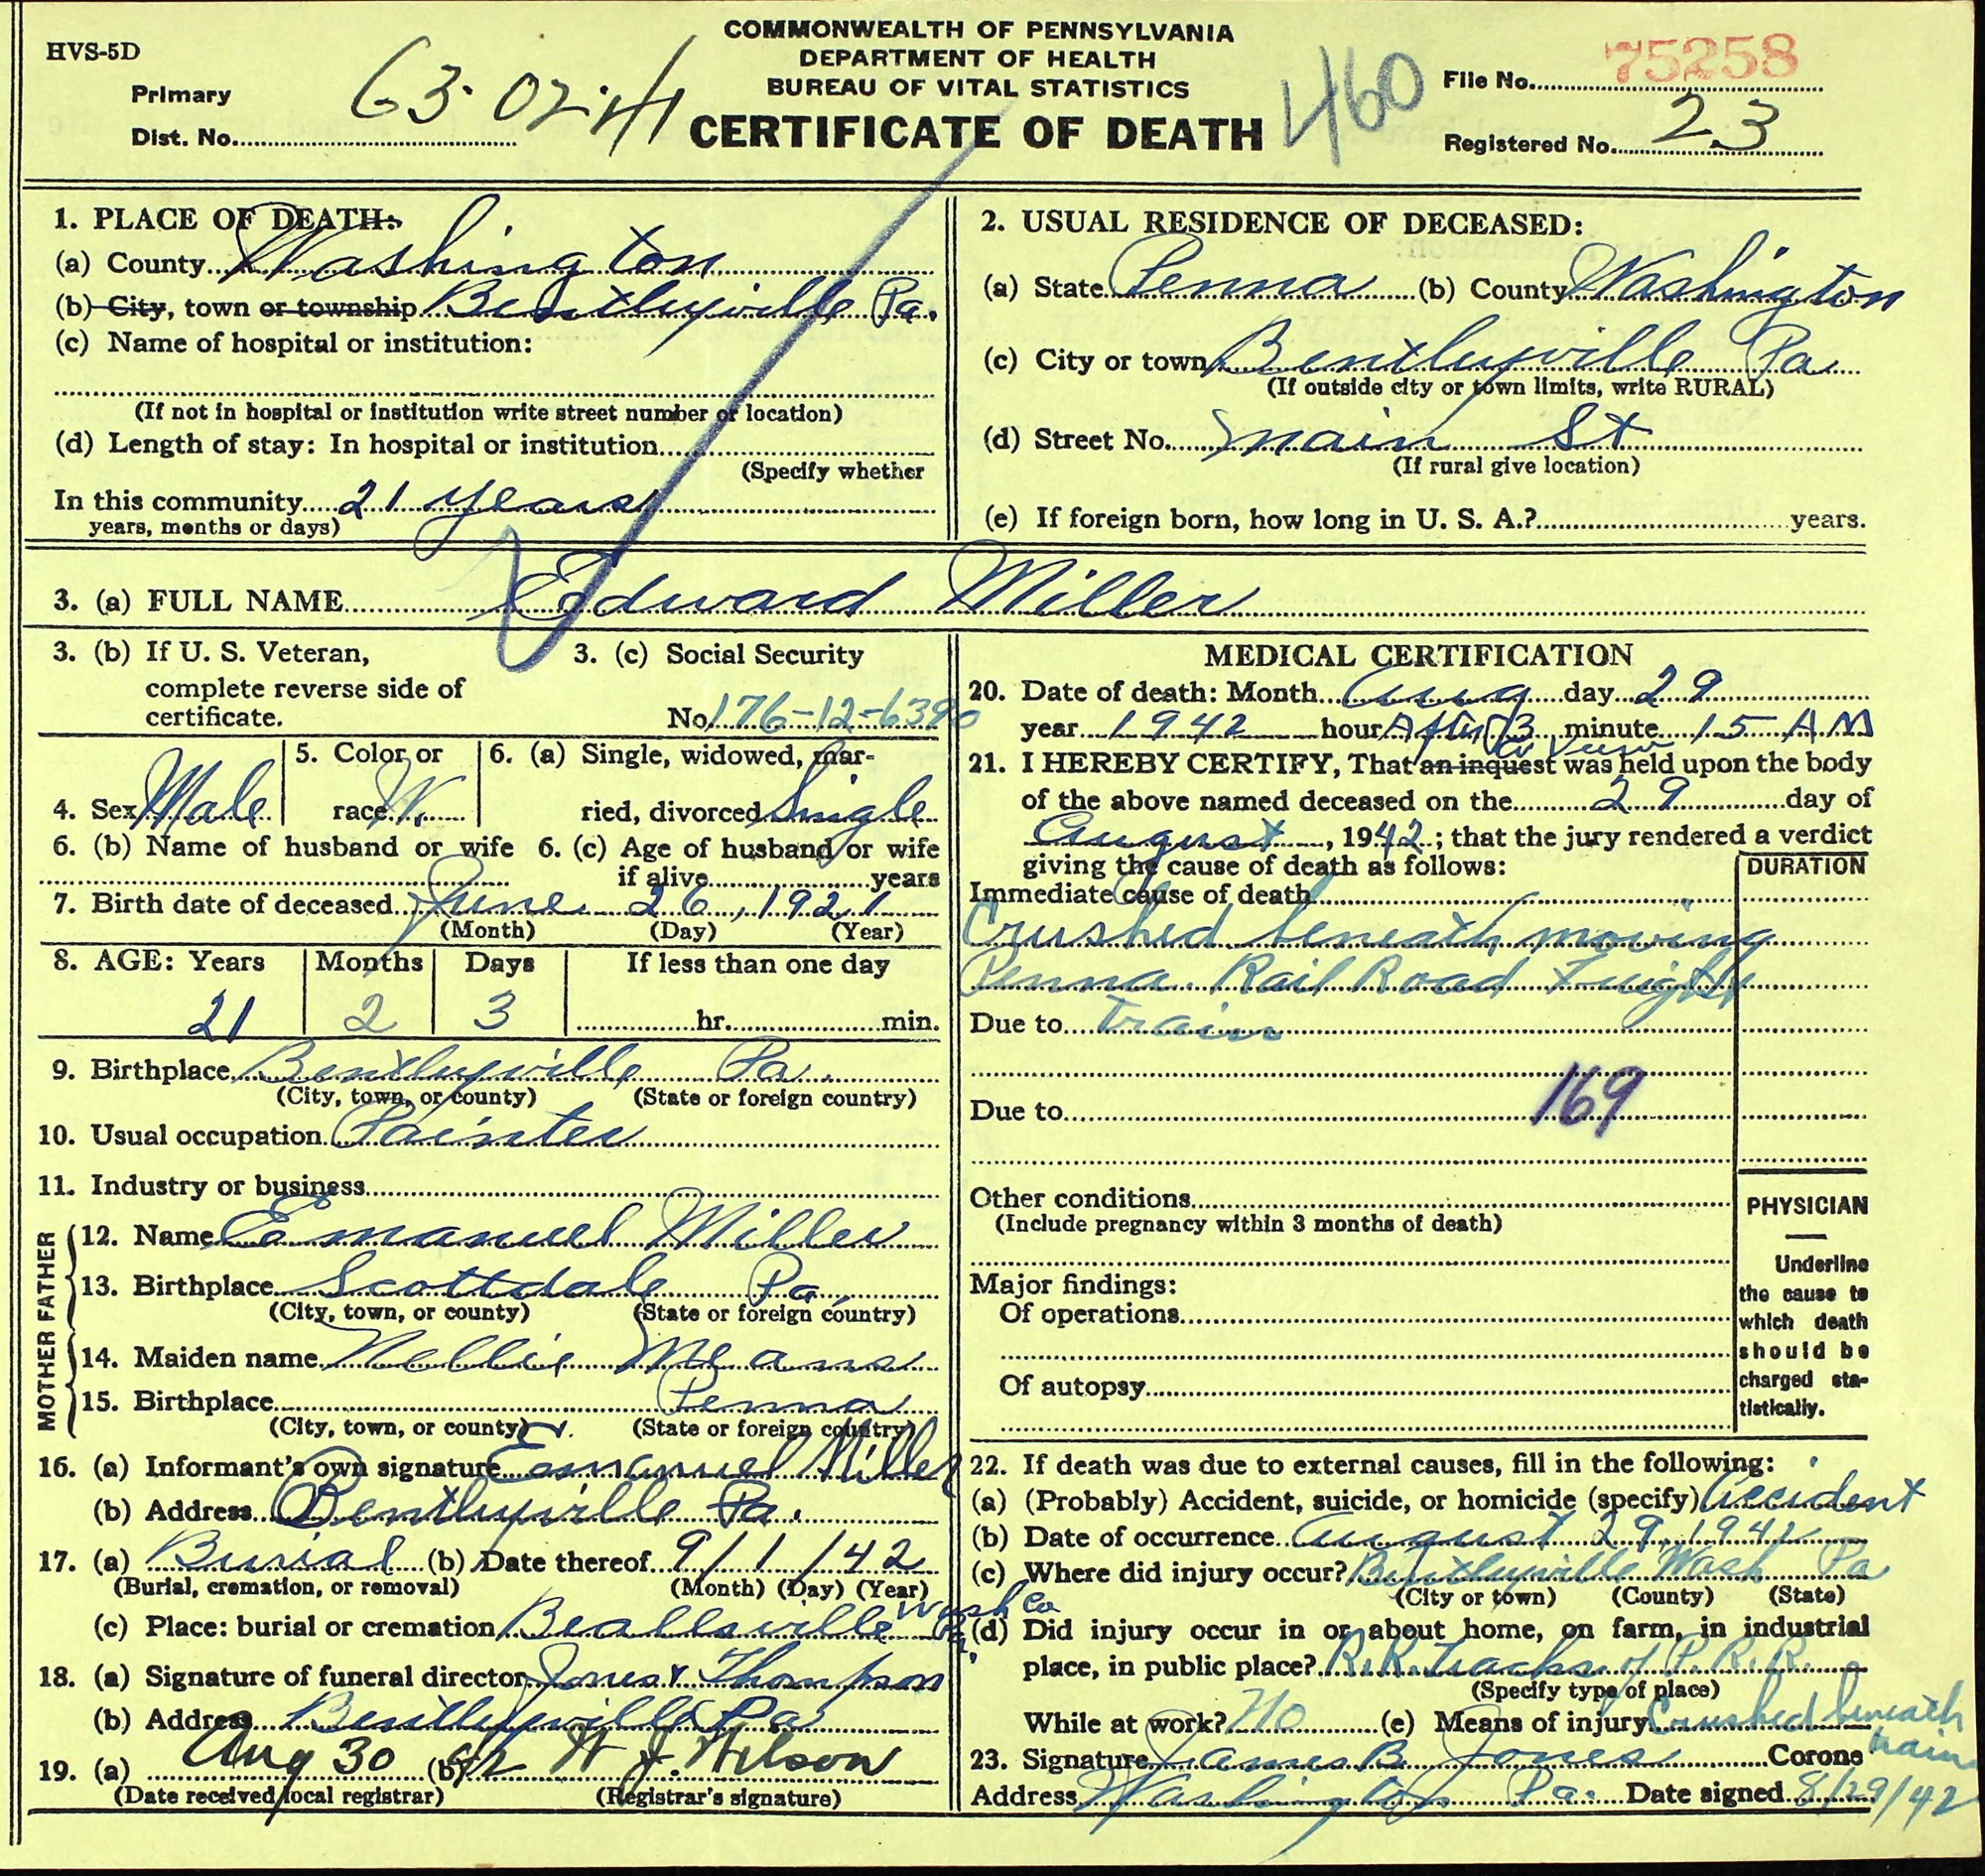 HVS-5D
COMMONWEALTH OF PENNSYLVANIA
DEPARTMENT OF HEALTH
BUREAU OF VITAL STATISTICS
CERTIFICATE OF DEATH
460
Primary
Dist. No. 63-02-41
File No. 75258
Registered No. 23
1. PLACE OF DEATH:
(a) County Washington
(b) City, town or township Bentleyville Pa.
(c) Name of hospital or institution:
(If not in hospital or institution write street number or location)
(d) Length of stay: In hospital or institution
(Specify whether
In this community 21 years
years, months or days)
2. USUAL RESIDENCE OF DECEASED:
(a) State Penna (b) County Washington
(c) City or town Bentleyville Pa
(If outside city or town limits, write RURAL)
(d) Street No. Main St
(If rural give location)
(e) If foreign born, how long in U. S. A.? years.
3. (a) FULL NAME Edward Miller
3. (b) If U. S. Veteran,
complete reverse side of
certificate.
3. (c) Social Security
No. 176-12-6390
4. Sex Male
5. Color or
race W.
6. (a) Single, widowed, mar-
ried, divorced Single
6. (b) Name of husband or wife
6. (c) Age of husband or wife
if alive years
7. Birth date of deceased June 26, 1921
(Month) (Day) (Year)
8. AGE: Years Months Days If less than one day
21 2 3 hr. min.
9. Birthplace Bentleyville Pa.
(City, town, or county) (State or foreign country)
10. Usual occupation Painter
11. Industry or business
FATHER
12. Name Emanuel Miller
13. Birthplace Scottdale Pa.
(City, town, or county) (State or foreign country)
MOTHER
14. Maiden name Nellie Means
15. Birthplace Penna
(City, town, or county) (State or foreign country)
16. (a) Informant's own signature Emanuel Miller
(b) Address Bentleyville Pa.
17. (a) Burial (b) Date thereof 9/1/42
(Burial, cremation, or removal) (Month) (Day) (Year)
(c) Place: burial or cremation Beallsville Wash Co Pa.
18. (a) Signature of funeral director Jones & Thompson
(b) Address Bentleyville Pa
19. (a) Aug 30 42 (b) W. J. Wilson
(Date received local registrar) (Registrar's signature)
MEDICAL CERTIFICATION
20. Date of death: Month Aug day 29
year 1942 hour After 3 minute 15 AM
21. I HEREBY CERTIFY, That an inquest a View was held upon the body
of the above named deceased on the 29 day of
August, 1942; that the jury rendered a verdict
giving the cause of death as follows:
DURATION
Immediate cause of death
Crushed beneath moving
Penna. Rail Road Freight
Due to train
169
Due to
Other conditions
(Include pregnancy within 3 months of death)
Major findings:
Of operations
Of autopsy
PHYSICIAN
Underline
the cause to
which death
should be
charged sta-
tistically.
22. If death was due to external causes, fill in the following:
(a) (Probably) Accident, suicide, or homicide (specify) Accident
(b) Date of occurrence August 29, 1942
(c) Where did injury occur? Bentleyville Wash Pa
(City or town) (County) (State)
(d) Did injury occur in or about home, on farm, in industrial
place, in public place? R.R. Tracks of P.R.R.
(Specify type of place)
While at work? No (e) Means of injury Crushed beneath
train
23. Signature James B. Jones Corone
Address Washington Pa. Date signed 8/29/42